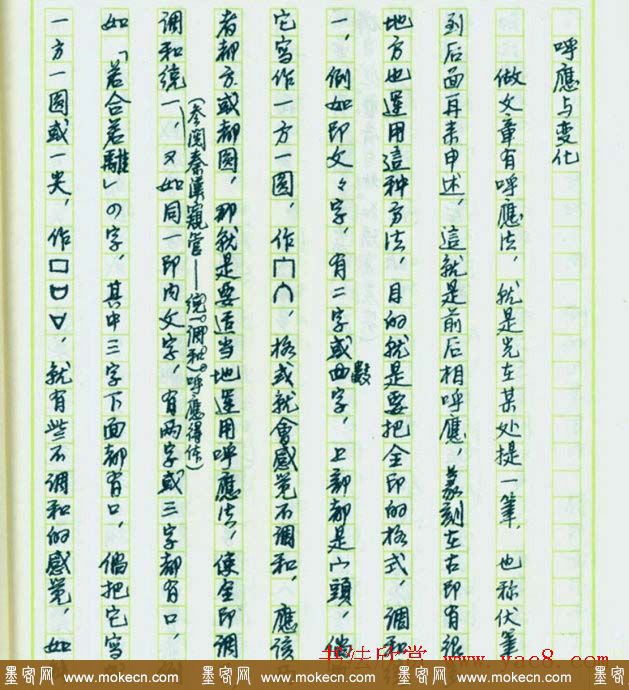 呼應与变化
做文章有呼應法，就是先在某处提一筆，也称伏筆
到后面再来申述，這就是前后相呼應，篆刻左右即有很
地方也運用這种方法，目的就是要把全印的格式，调和
一，例如印文々字，有二字或数字，上部都是宀頭，倘
它写作一方一圆，作冂∩，格式就會感觉不调和，應该
者都方或都圆，那就是要适当地運用呼應法，使全印调
(参阅秦漢窺管——统一调和呼應得体)
调和统一，又如同一印内文字，有两字或三字都有口，
如「若合若離」の字，其中三字下面都有口，倘把它写
一方一圆或一尖，作口▽，就有些不调和的感觉，如
书法欣赏 www.yac8.com
墨客网 www.mokecn.com 墨客网 www.mokecn.com 墨客网 www.mokecn.com